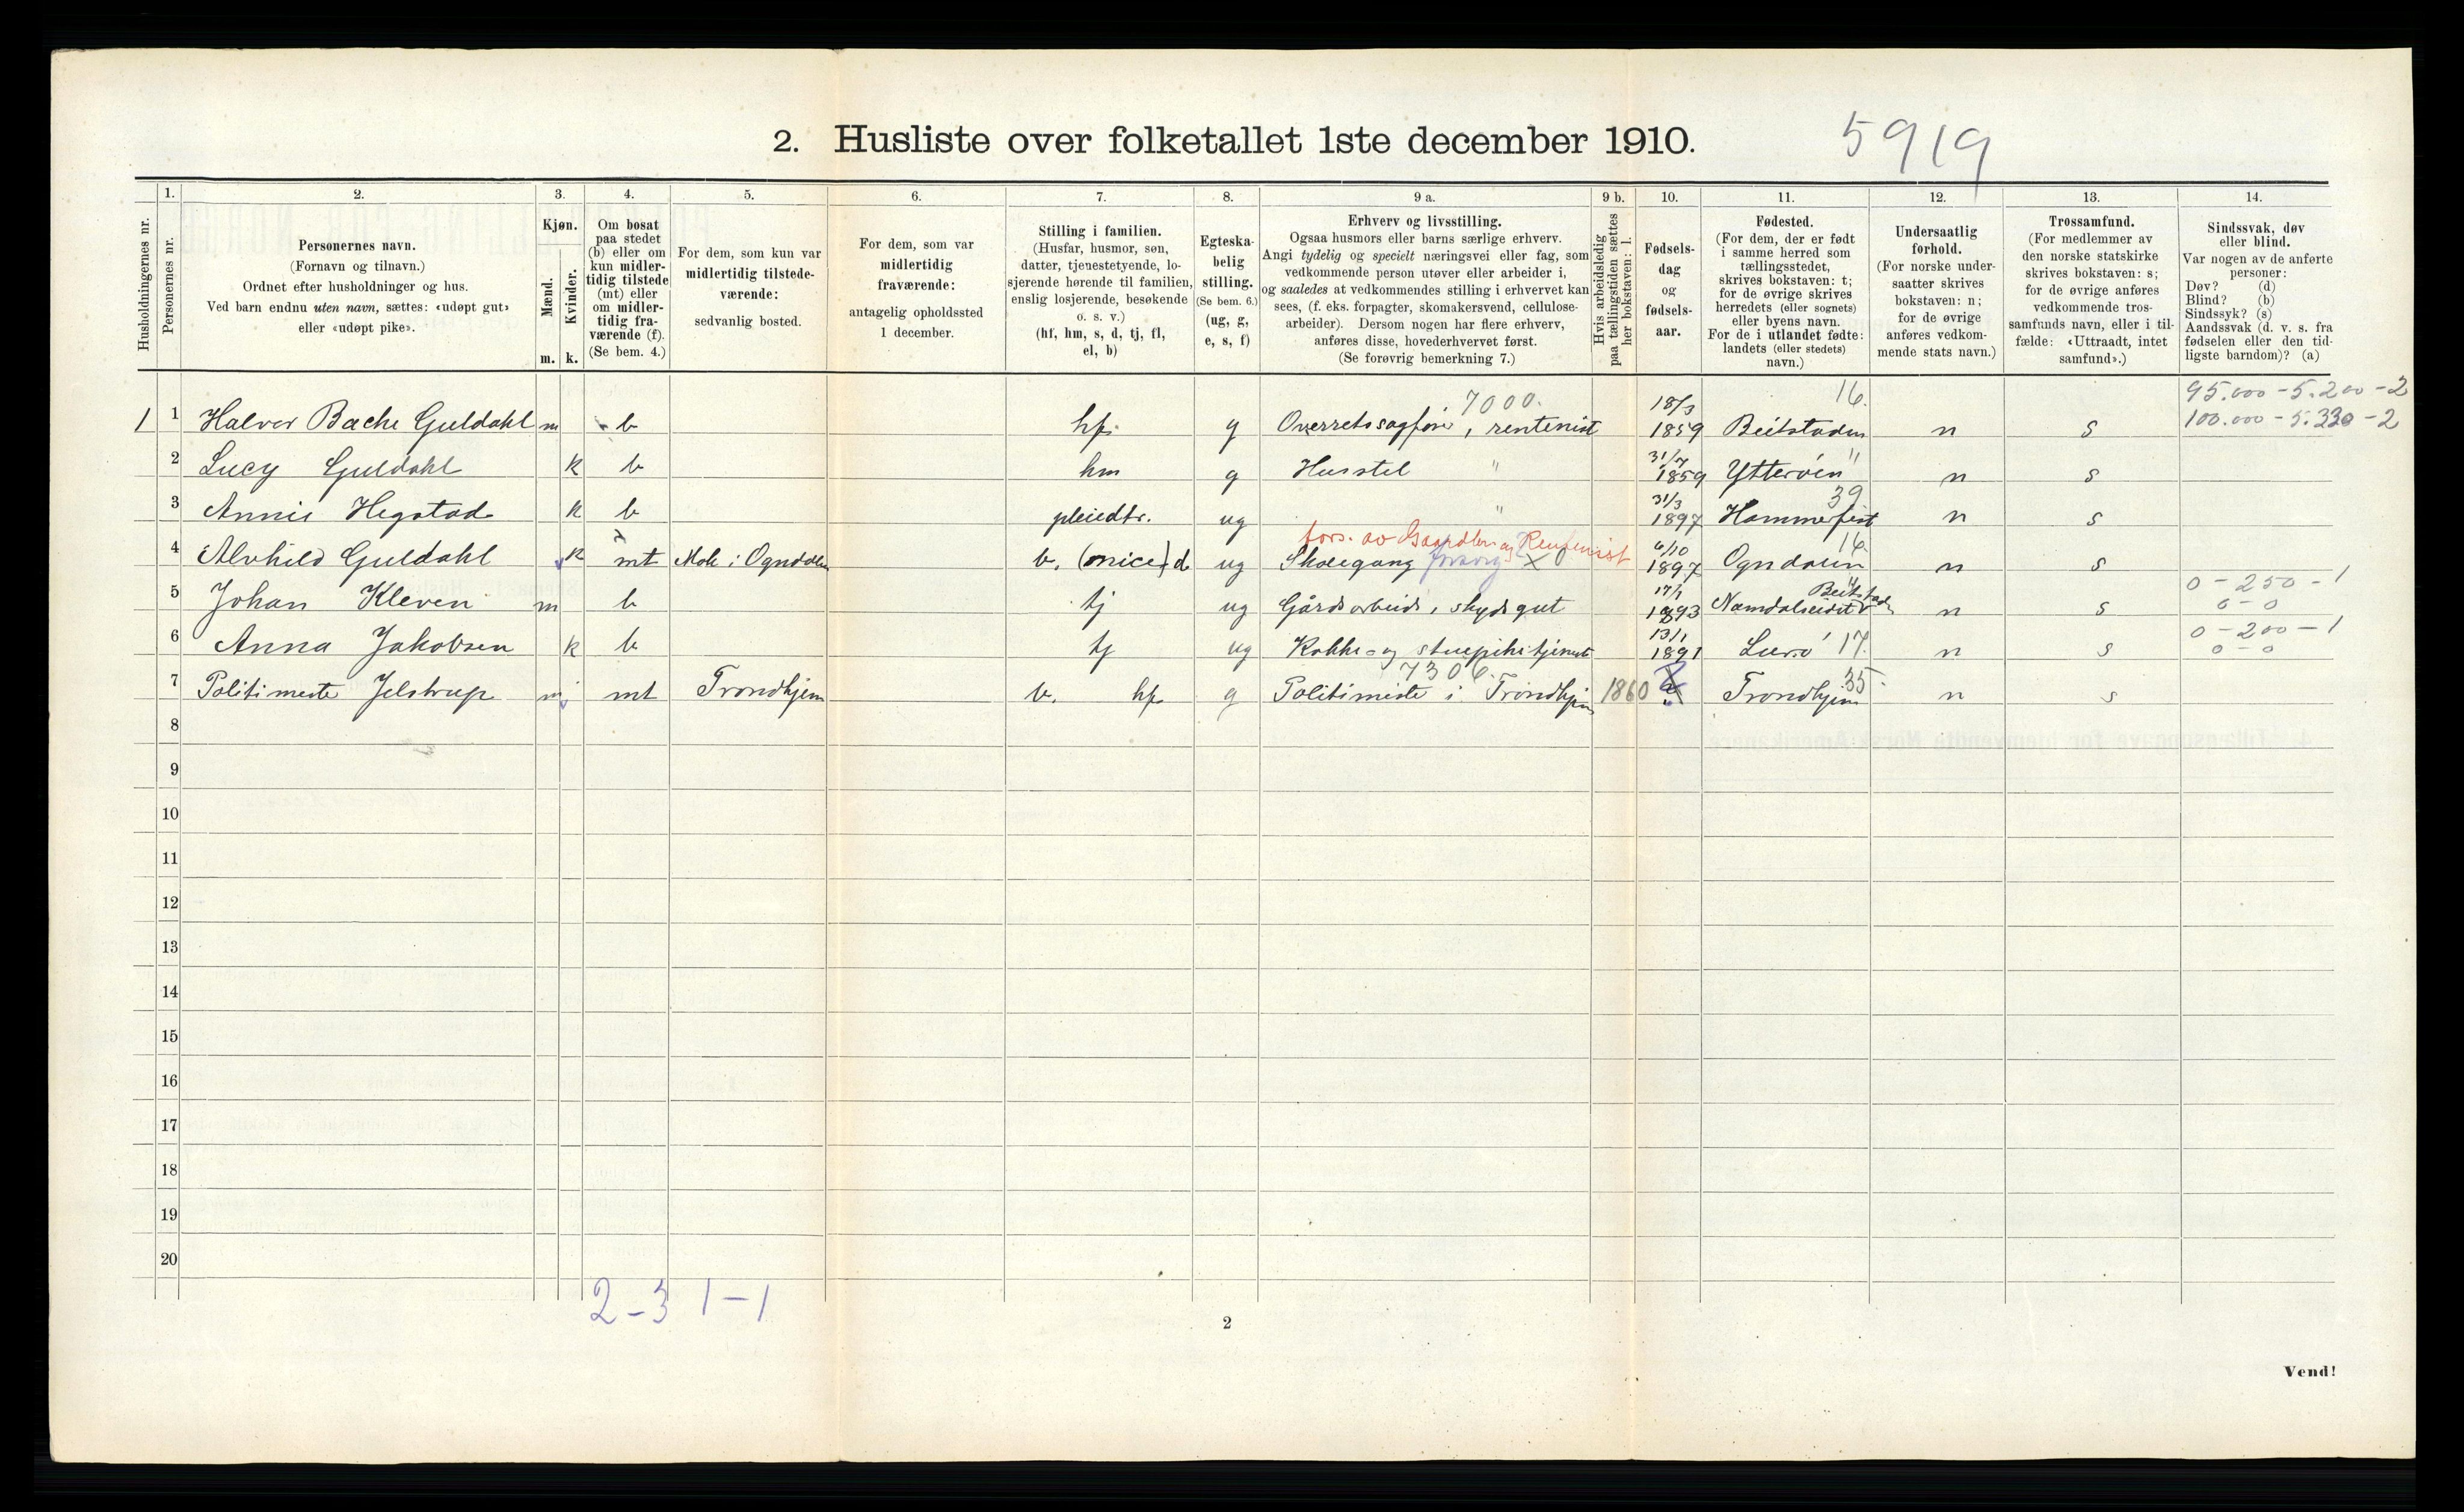 2. Husliste over folketallet 1ste december 1910.
5919
Husholdningernes nr.
1.
Personernes nr.
2.
Personernes navn.
(Fornavn og tilnavn.)
Ordnet efter husholdninger og hus.
Ved barn endnu uten navn, sættes: «udøpt gut»
eller «udøpt pike».
3.
Kjøn.
Mænd.
Kvinder.
m. k.
4.
Om bosat
paa stedet
(b) eller om
kun midler-
tidig tilstede
(mt) eller
om midler-
tidig fra-
værende (f).
(Se bem. 4.)
5.
For dem, som kun var
midlertidig tilstede-
værende:
sedvanlig bosted.
6.
For dem, som var
midlertidig
fraværende:
antagelig opholdssted
1 december.
7.
Stilling i familien.
(Husfar, husmor, søn,
datter, tjenestetyende, lo-
sjerende hørende til familien,
enslig losjerende, besøkende
o. s. v.)
(hf, hm, s, d, tj, fl,
el, b)
8.
Egteska-
belig
stilling.
(Se bem. 6.)
(ug, g,
e, s, f)
9 a.
Erhverv og livsstilling.
Ogsaa husmors eller barns særlige erhverv.
Angi tydelig og specielt næringsvei eller fag, som
vedkommende person utøver eller arbeider i,
og saaledes at vedkommendes stilling i erhvervet kan
sees, (f. eks. forpagter, skomakersvend, cellulose-
arbeider). Dersom nogen har flere erhverv,
anføres disse, hovederhvervet først.
(Se forøvrig bemerkning 7.)
9 b.
Hvis arbeidsledig
paa tællingstiden sættes
her bokstaven: l.
10.
Fødsels-
dag
og
fødsels-
aar.
11.
Fødested.
(For dem, der er født
i samme herred som
tællingsstedet,
skrives bokstaven: t;
for de øvrige skrives
herredets (eller sognets)
eller byens navn.
For de i utlandet fødte:
landets (eller stedets)
navn.)
12.
Undersaatlig
forhold.
(For norske under-
saatter skrives
bokstaven: n;
for de øvrige
anføres vedkom-
mende stats navn.)
13.
Trossamfund.
(For medlemmer av
den norske statskirke
skrives bokstaven: s;
for de øvrige anføres
vedkommende tros-
samfunds navn, eller i til-
fælde: «Uttraadt, intet
samfund».)
14.
Sindssvak, døv
eller blind.
Var nogen av de anførte
personer:
Døv? (d)
Blind? (b)
Sindssyk? (s)
Aandssvak (d. v. s. fra
fødselen eller den tid-
ligste barndom)? (a)
7000. 18/3 16. 95.000 - 5.200 - 2
1 1 Halvor Bache Guldahl m b hf. g Overretssagfører, rentenist 1859 Beitstaden n s 100.000 - 5.330 - 2
31/7 "
2 Lucy Guldahl k b hm g Husstel " 1859 Ytterøen n s
31/3 39
3 Annie Hegstad k b pleiedtr. ug " 1897 Hammerfest n s
fors. av Gaardbr. og Rentenist 6/10 16.
4 Alvhild Guldahl k mt Mok i Ogndalen b. (niece) d ug Skolegang forsørg x 1897 Ogndalen n s
17/1 Beitstaden 0 - 250 - 1
5 Johan Kleven m b tj ug Gårdsarbeide, skydsgut 1893 Namdalseidet n s 0 - 0
13/1 0 - 200 - 1
6 Anna Jakobsen k b tj ug Kokke- og stuepiketjeneste 1891 Lurø 17. n s 0 - 0
7306. 35
7 Politimester Jelstrup m mt Trondhjem b. hf. g Politimester i Trondhjem 1860 Trondhjem n s
8
9
10
11
12
13
14
15
16
17
18
19
20
2 - 3 1 - 1
2
Vend!